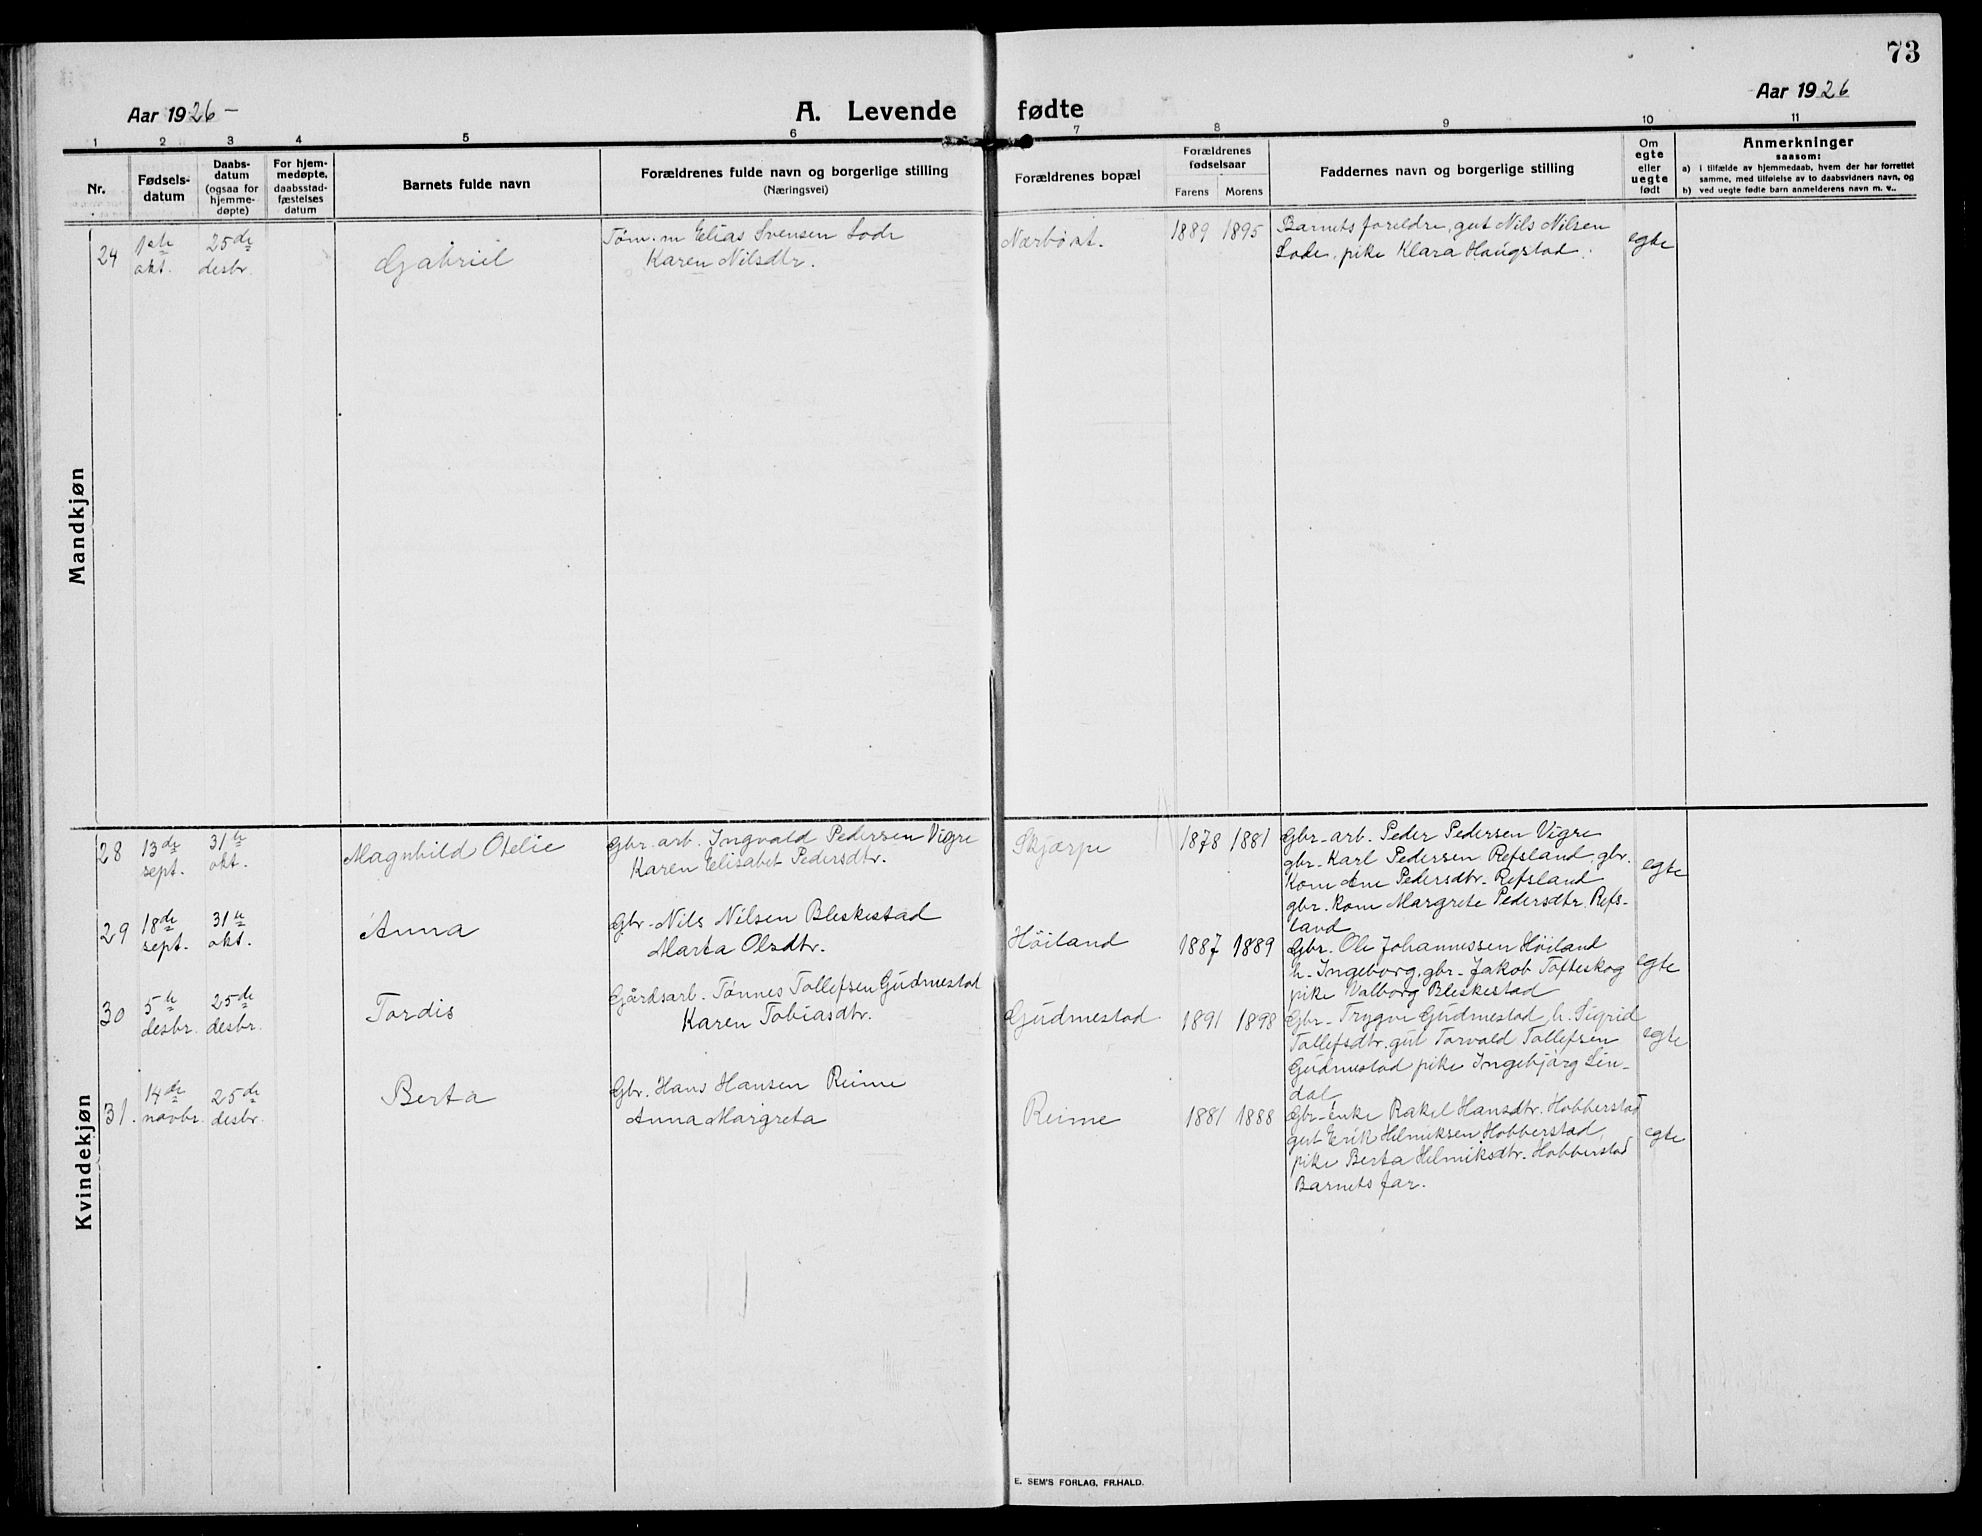 73
Aar 1926 -
A. Levende fødte
Aar 1926
1 2 3 4 5 6 7 8 9 10 11
Nr.
Fødsels-
datum
Daabs-
datum
(ogsaa for
hjemme-
døpte)
For hjem-
medøpte,
daabsstad-
fæstelses
datum
Barnets fulde navn
Forældrenes fulde navn og borgerlige stilling
(Næringsvei)
Forældrenes bopæl
Forældrenes
fødselsaar
Farens Morens
Faddernes navn og borgerlige stilling
Om
egte
eller
uegte
født
Anmerkninger
saasom:
a) i tilfælde av hjemmedaab, hvem der har forrettet
samme, med tilføielse av to daabsvidners navn, og
b) ved uegte fødte barn anmelderens navn m. v..
Mandkjøn
24
1ste
okt.
25de
desbr.
Gabriel
Tøm. m Elias Svensen Lode
Karen Nilsdtr.
Nærbø st.
1889 1895
Barnets foreldre, gut Nils Nilsen
Lode, pike Klara Haugstad.
egte
Kvindekjøn
28
13de
sept.
31te
okt.
Magnhild Otelie
Gbr. arb. Ingvald Pedersen Vigre
Karen Elisabet Pedersdtr.
Skjærpe
1878 1881
Gbr. arb. Peder Pedersen Vigre
gbr. Karl Pedersen Refsland, gbr.
Kone Ane Pedersdtr. Refsland
gbr. kone Margrete Pedersdtr. Refs-
land
egte
29
18de
sept.
31te
okt.
Anna
Gbr. Nils Nilsen Bleskestad
Marta Olsdtr.
Høiland
1887 1889
Gbr. Ole Johannessen Høiland
h. Ingeborg, gbr. Jakob Tofteskog
pike Valborg Bleskestad
egte
30
5te
desbr.
25de
desbr.
Tordis
Gårdsarb. Tønnes Tollefsen Gudmestad
Karen Tobiasdtr.
Gudmestad
1891 1898
Gbr. Trygve Gudmestad, h. Sigrid
Tollefsdtr. gut Torvald Tollefsen
Gudmestad pike Ingebjørg Lin-
dal
egte
31.
14de
novbr.
25de
desbr.
Berta
Gbr. Hans Hansen Reime
Anna Margreta
Reime
1881 1888
Gbr. enke Rakel Hansdtr. Hobberstad
gut Erik Helmiksen Hobberstad,
pike Berta Helmiksdtr. Hobberstad
Barnets far.
egte
E. SEM'S FORLAG, FR.HALD.